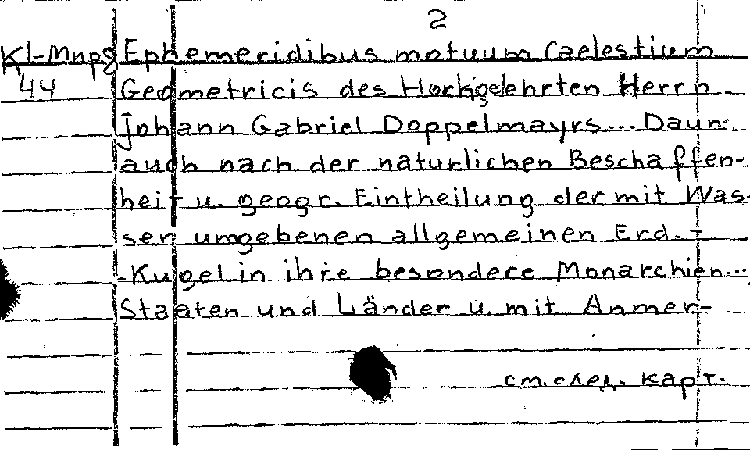 2
Kl-Mnpg Ephemeridibus motuum Caelestium
44 Geometricis des Hochgelehrten Herrn
Johann Gabriel Doppelmayrs... Dann
auch nach der naturlichen Beschaffen-
heit u. geogr. Eintheilung der mit Was-
ser umgebenen allgemeinen Erd-
-Kugel in ihre besondere Monarchien...
Staaten und Länder u. mit Anmer-
см. след. карт.